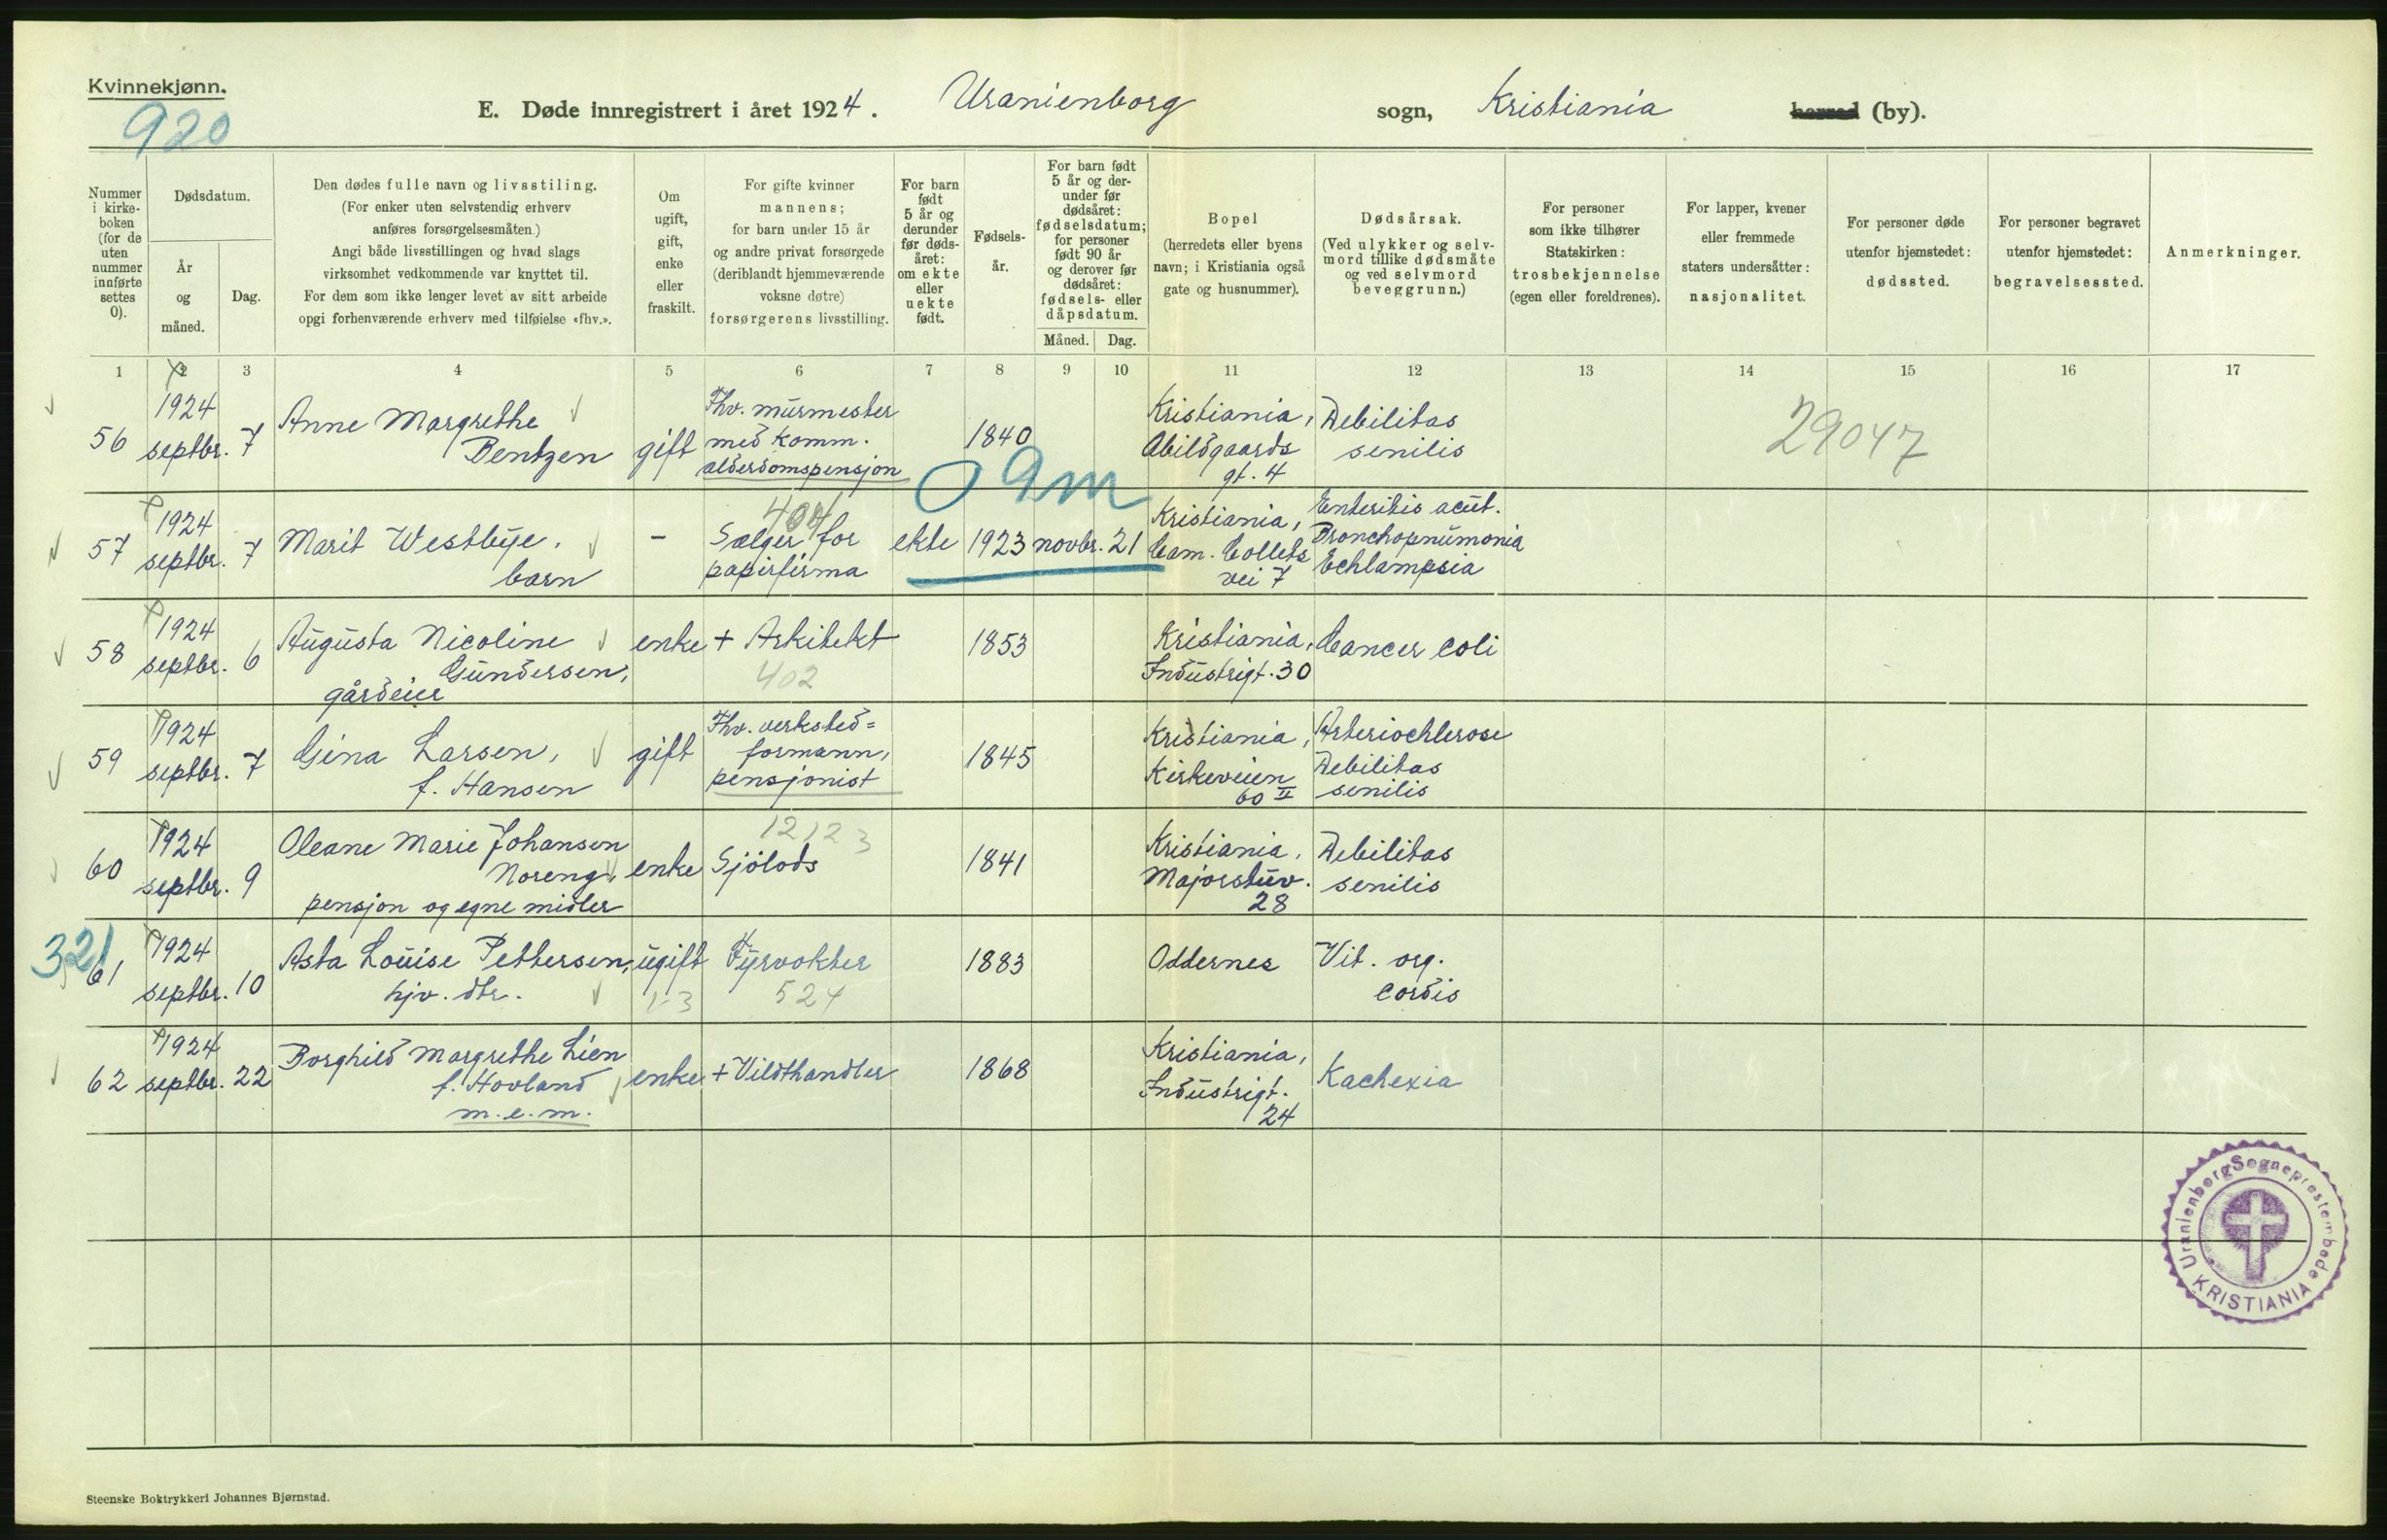 Kvinnekjønn.
920
E. Døde innregistrert i året 1924. Uranienborg sogn, Kristiania herred (by).
Nummer i kirkeboken (for de uten nummer innførte settes 0).
Dødsdatum.
År og måned.
Dag.
Den dødes fulle navn og livsstiling.
(For enker uten selvstendig erhverv
anføres forsørgelsesmåten.)
Angi både livsstillingen og hvad slags
virksomhet vedkommende var knyttet til.
For dem som ikke lenger levet av sitt arbeide
opgi forhenværende erhverv med tilføielse «fhv.».
Om ugift, gift, enke eller fraskilt.
For gifte kvinner
mannens;
for barn under 15 år
og andre privat forsørgede
(deriblandt hjemmeværende
voksne døtre)
forsørgerens livsstilling.
For barn født 5 år og derunder før dødsåret: om ekte eller uekte født.
Fødselsår.
For barn født 5 år og derunder før dødsåret: fødselsdatum; for personer født 90 år og derover før dødsåret: fødsels- eller dåpsdatum.
Måned. Dag.
Bopel
(herredets eller byens
navn; i Kristiania også
gate og husnummer).
Dødsårsak.
(Ved ulykker og selvmord tillike dødsmåte
og ved selvmord
beveggrunn.)
For personer
som ikke tilhører
Statskirken:
trosbekjennelse
(egen eller foreldrenes).
For lapper, kvener
eller fremmede
staters undersåtter:
nasjonalitet.
For personer døde
utenfor hjemstedet:
dødssted.
For personer begravet
utenfor hjemstedet:
begravelsessted.
Anmerkninger.
1 2 3 4 5 6 7 8 9 10 11 12 13 14 15 16 17
56 1924 septbr. 7 Anne Margrethe Bentzen gift Fhv. murmester med komm. alderdomspensjon 1840 Kristiania, Abildgaards gt. 4 Debilitas senilis
29047
09m
57 1924 septbr. 7 Marit Westbye, barn - 404 Sælger for papirfirma ekte 1923 novbr. 21 Kristiania, Cam. Colletts vei 7 Enteritis acut. Bronchopnumonia Echlampsia
58 1924 septbr. 6 Augusta Nicoline Gundersen, gårdeier enke + Arkitekt 402 1853 Kristiania, Industrigt. 30 Cancer coli
59 1924 septbr. 7 Gina Larsen, f. Hansen gift Fhv. verksted=formann, pensjonist 1845 Kristiania, Kirkeveien 60 II Arteriochlerose Debilitas senilis
60 1924 septbr. 9 Oleane Marie Johansen Noreng, pensjon og egne midler enke 12123 Sjölods 1841 Kristiania, Majorstuv. 28 Debilitas senilis
321
61 1924 septbr. 10 Asta Louise Pettersen, hjv. dtr. ugift Fyrvokter 524 1883 Oddernes Vit. org. cordis
62 1924 septbr. 22 Borghild Margrethe Lien f. Hovland m.e.m. enke + Vildthandler 1868 Kristiania, Industrigt. 24 Kachexia
Uranienborg Sogneprestembede
KRISTIANIA
Steenske Boktrykkeri Johannes Bjørnstad.